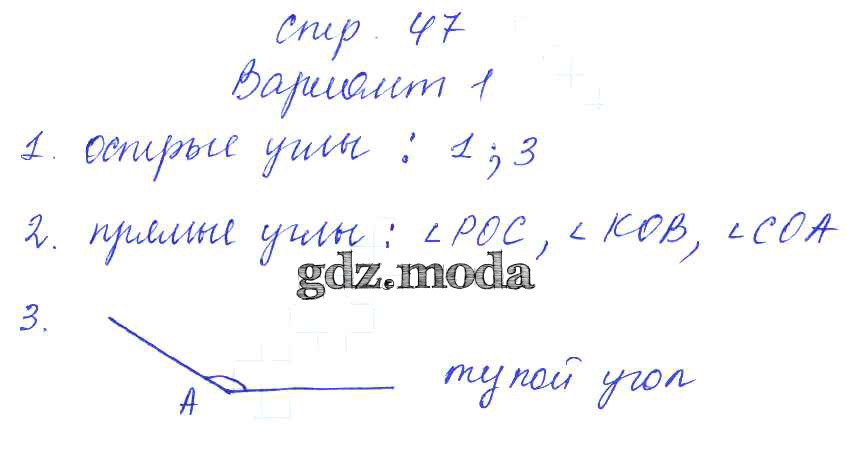 Стр. 47
Вариант 1
1. острые углы : 1; 3
2. прямые углы : ∠POC, ∠KOB, ∠COA
gdz.moda
3.
A
тупой угол